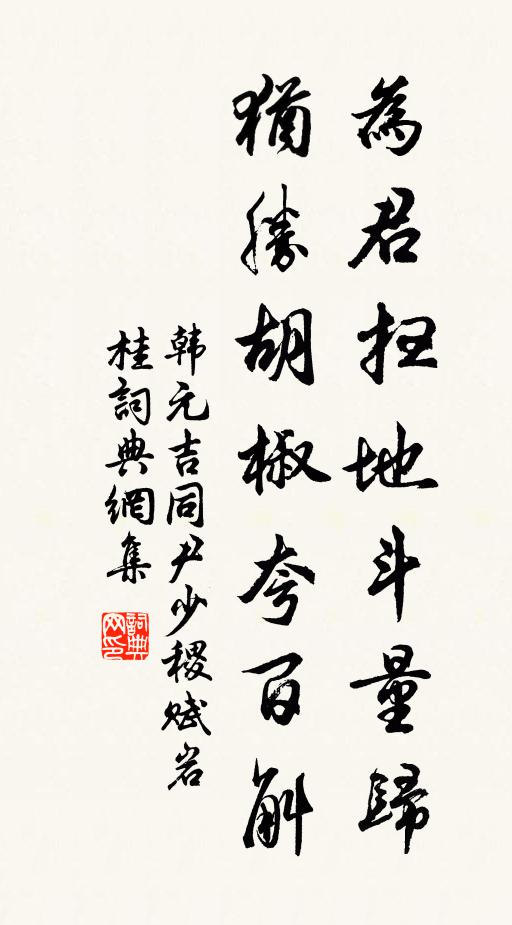 為君扫地斗量歸
猶勝胡椒夸百斛
韩元吉同尹少稷赋岩
桂詞典網集
詞典网印